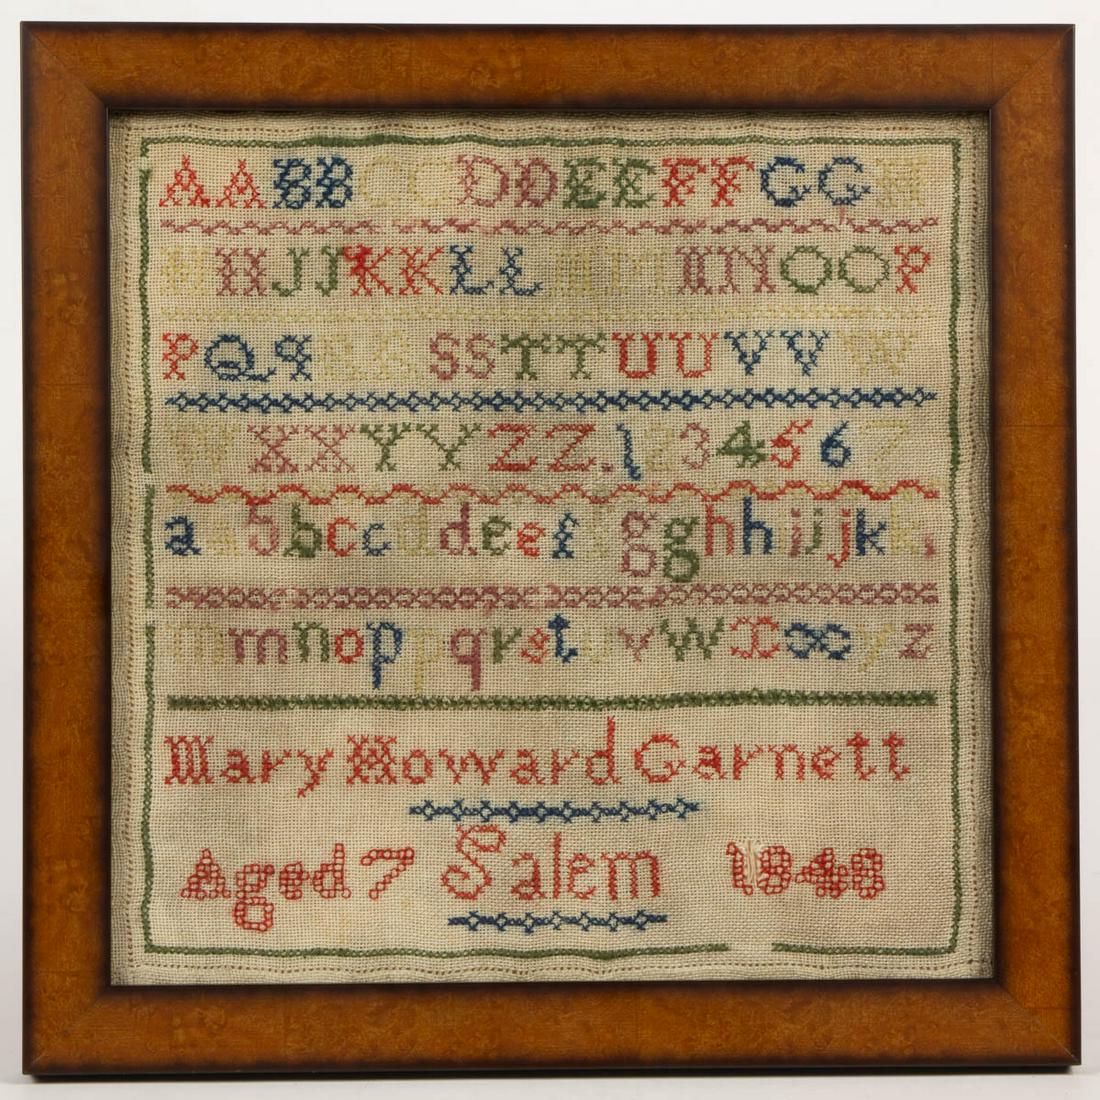 A A B B C C D D E E F F G G H
H I I J J K K L L M M N N O O P
P Q q R R S S T T U U V V W
W X X Y Y Z Z . 1 2 3 4 5 6 7
a a b b c c d d e e f f g g h h i i j k k l
m m n o p p q r s t u v w x x y z
Mary Howard Garnett
Aged 7 Salem 1848